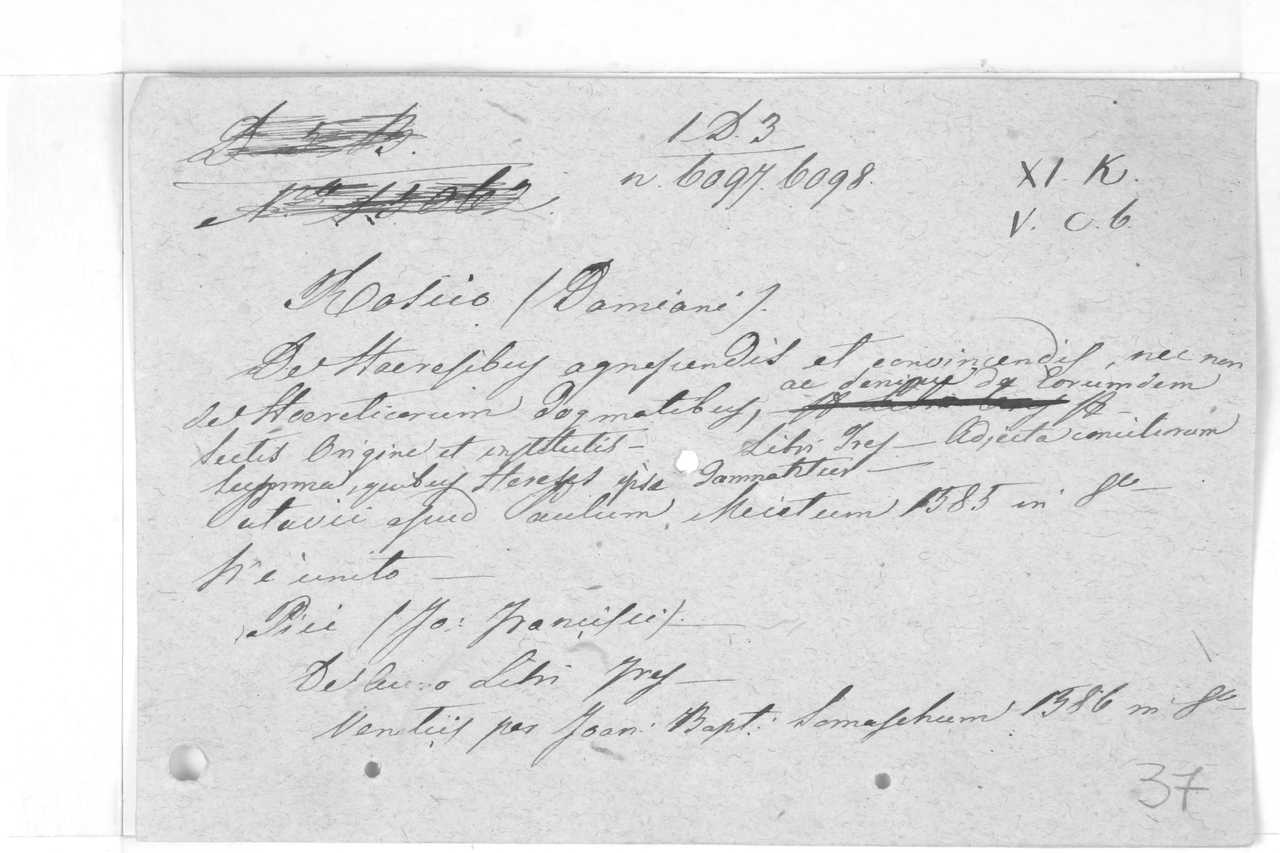 1 D. 3
n. 6097. 6098.
XI. K.
V. c. 6
(Damiani).
De Haeresibus et convincendis, nec non
de Haereticorum dogmatibus, ac denique de eorumdem
sectis Origine et institutis – Libri Tres – Adjecta conciliorum
summa, quibus Hereses ipse damnantur –
Patavii apud Paulum Meietum 1585 in 8º –
Vi è unito –
Pici (Jo: Francisci). –
De Auro Libri Tres –
Venetiis per Joan: Bapt: Somaschum 1586 in 8º –
37